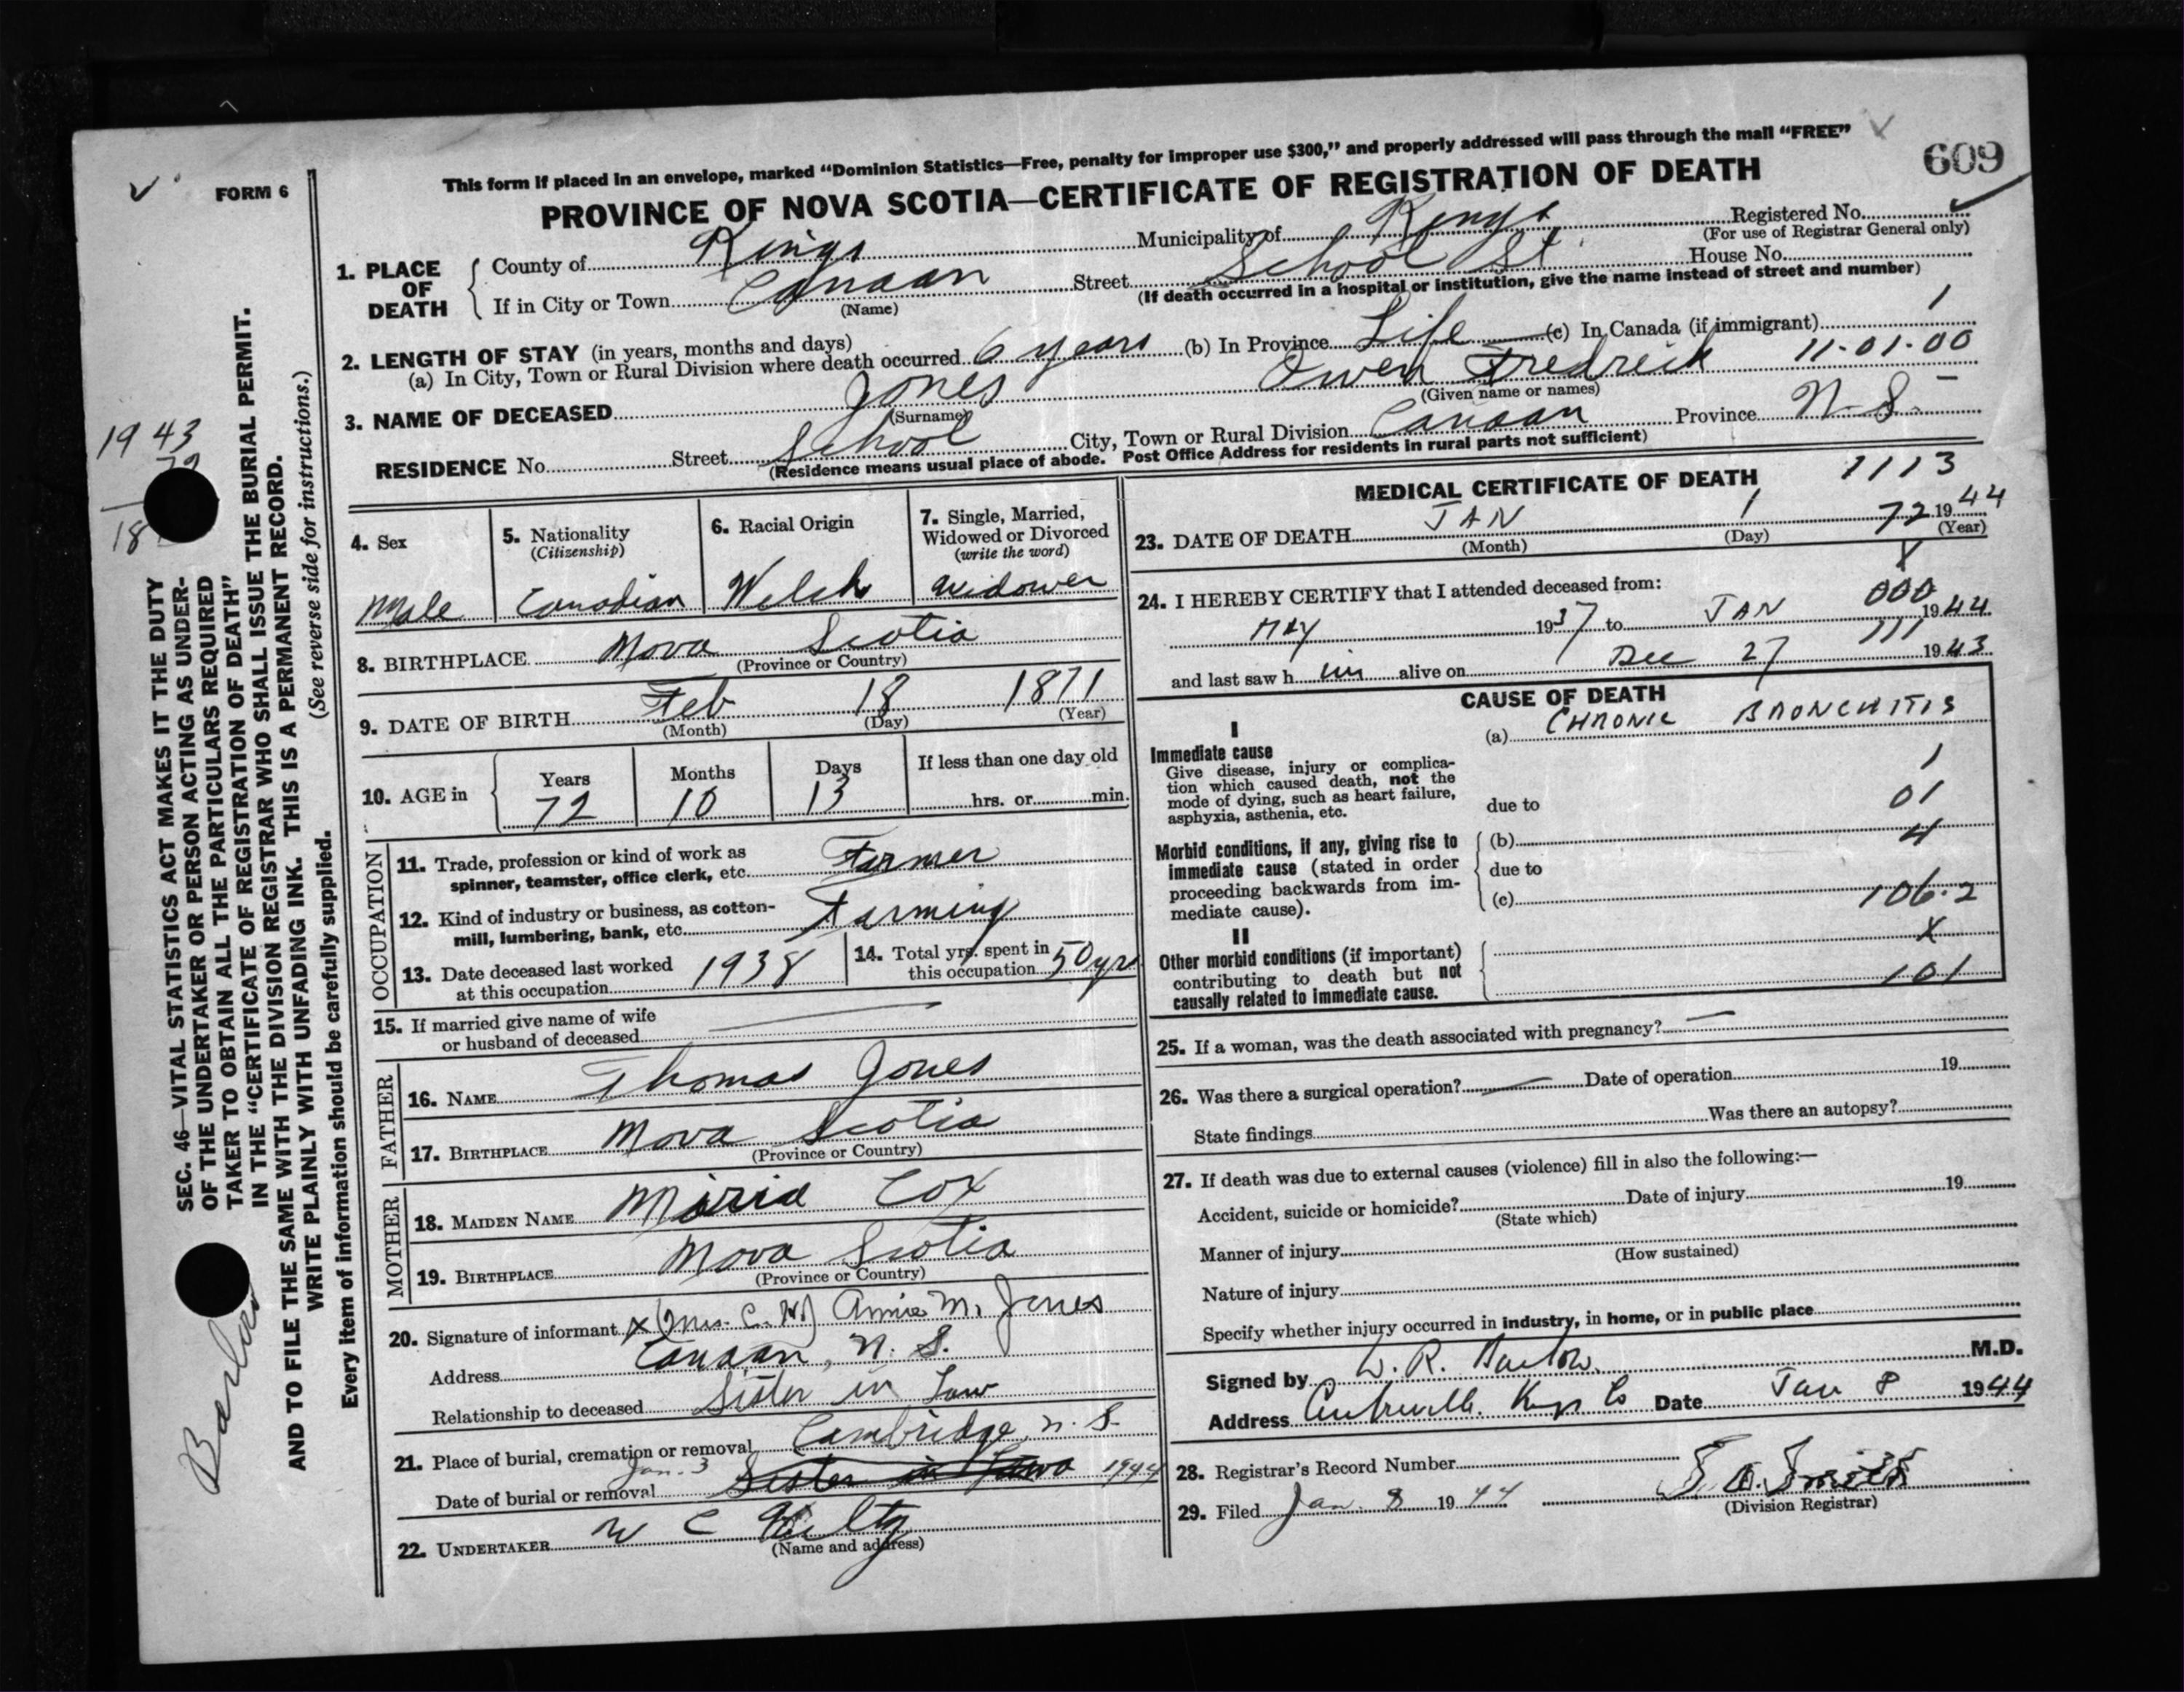 This form if placed in an envelope, marked "Dominion Statistics—Free, penalty for improper use $300," and properly addressed will pass through the mail "FREE"
609
FORM 6
PROVINCE OF NOVA SCOTIA—CERTIFICATE OF REGISTRATION OF DEATH
1. PLACE OF DEATH
County of Kings Municipality of Kings Registered No.
(For use of Registrar General only)
If in City or Town Canaan Street School St. House No.
(Name) (If death occurred in a hospital or institution, give the name instead of street and number)
2. LENGTH OF STAY (in years, months and days)
(a) In City, Town or Rural Division where death occurred 6 years (b) In Province Life (c) In Canada (if immigrant) 1
11-01-00
3. NAME OF DECEASED Jones Owen Fredrick
(Surname) (Given name or names)
RESIDENCE No. Street School City, Town or Rural Division Canaan Province N.S.
(Residence means usual place of abode. Post Office Address for residents in rural parts not sufficient)
4. Sex Male
5. Nationality (Citizenship) Canadian
6. Racial Origin Welsh
7. Single, Married, Widowed or Divorced (write the word) Widower
8. BIRTHPLACE Nova Scotia
(Province or Country)
9. DATE OF BIRTH Feb 18 1871
(Month) (Day) (Year)
10. AGE in Years 72 Months 10 Days 13 If less than one day old hrs. or min.
OCCUPATION
11. Trade, profession or kind of work as spinner, teamster, office clerk, etc. Farmer
12. Kind of industry or business, as cotton-mill, lumbering, bank, etc. Farming
13. Date deceased last worked at this occupation 1938
14. Total yrs. spent in this occupation 50 yrs
15. If married give name of wife or husband of deceased
FATHER
16. NAME Thomas Jones
17. BIRTHPLACE Nova Scotia
(Province or Country)
MOTHER
18. MAIDEN NAME Maria Cox
19. BIRTHPLACE Nova Scotia
(Province or Country)
20. Signature of informant x (Mrs. C. H.) Annie M. Jones
Address Canaan, N. S.
Relationship to deceased Sister in Law
21. Place of burial, cremation or removal Cambridge, N. S.
Date of burial or removal Jan. 3 Sister in Law 1944
22. UNDERTAKER W C
(Name and address)
MEDICAL CERTIFICATE OF DEATH 1113
23. DATE OF DEATH JAN 1 72 1944
(Month) (Day) (Year)
X
24. I HEREBY CERTIFY that I attended deceased from: 000
MAY 1937 to JAN 1944
111
and last saw h im alive on Dec 27 1943
CAUSE OF DEATH
I
Immediate cause
Give disease, injury or complication which caused death, not the mode of dying, such as heart failure, asphyxia, asthenia, etc.
(a) CHRONIC BRONCHITIS
1
due to 01
Morbid conditions, if any, giving rise to immediate cause (stated in order proceeding backwards from immediate cause).
(b) 4
due to
(c) 106.2
II
X
Other morbid conditions (if important) contributing to death but not causally related to immediate cause.
101
25. If a woman, was the death associated with pregnancy? —
26. Was there a surgical operation? — Date of operation 19
State findings Was there an autopsy?
27. If death was due to external causes (violence) fill in also the following:—
Accident, suicide or homicide? Date of injury 19
(State which)
Manner of injury
(How sustained)
Nature of injury
Specify whether injury occurred in industry, in home, or in public place
Signed by W. R. Barlow. M.D.
Address Centreville. Kings Co Date Jan 8 1944
28. Registrar's Record Number
29. Filed Jan. 8 1944 Smith
(Division Registrar)
SEC. 46—VITAL STATISTICS ACT MAKES IT THE DUTY
OF THE UNDERTAKER OR PERSON ACTING AS UNDER-
TAKER TO OBTAIN ALL THE PARTICULARS REQUIRED
IN THE "CERTIFICATE OF REGISTRATION OF DEATH"
AND TO FILE THE SAME WITH THE DIVISION REGISTRAR WHO SHALL ISSUE THE BURIAL PERMIT.
WRITE PLAINLY WITH UNFADING INK. THIS IS A PERMANENT RECORD.
Every item of information should be carefully supplied. (See reverse side for instructions.)
1943
72
18